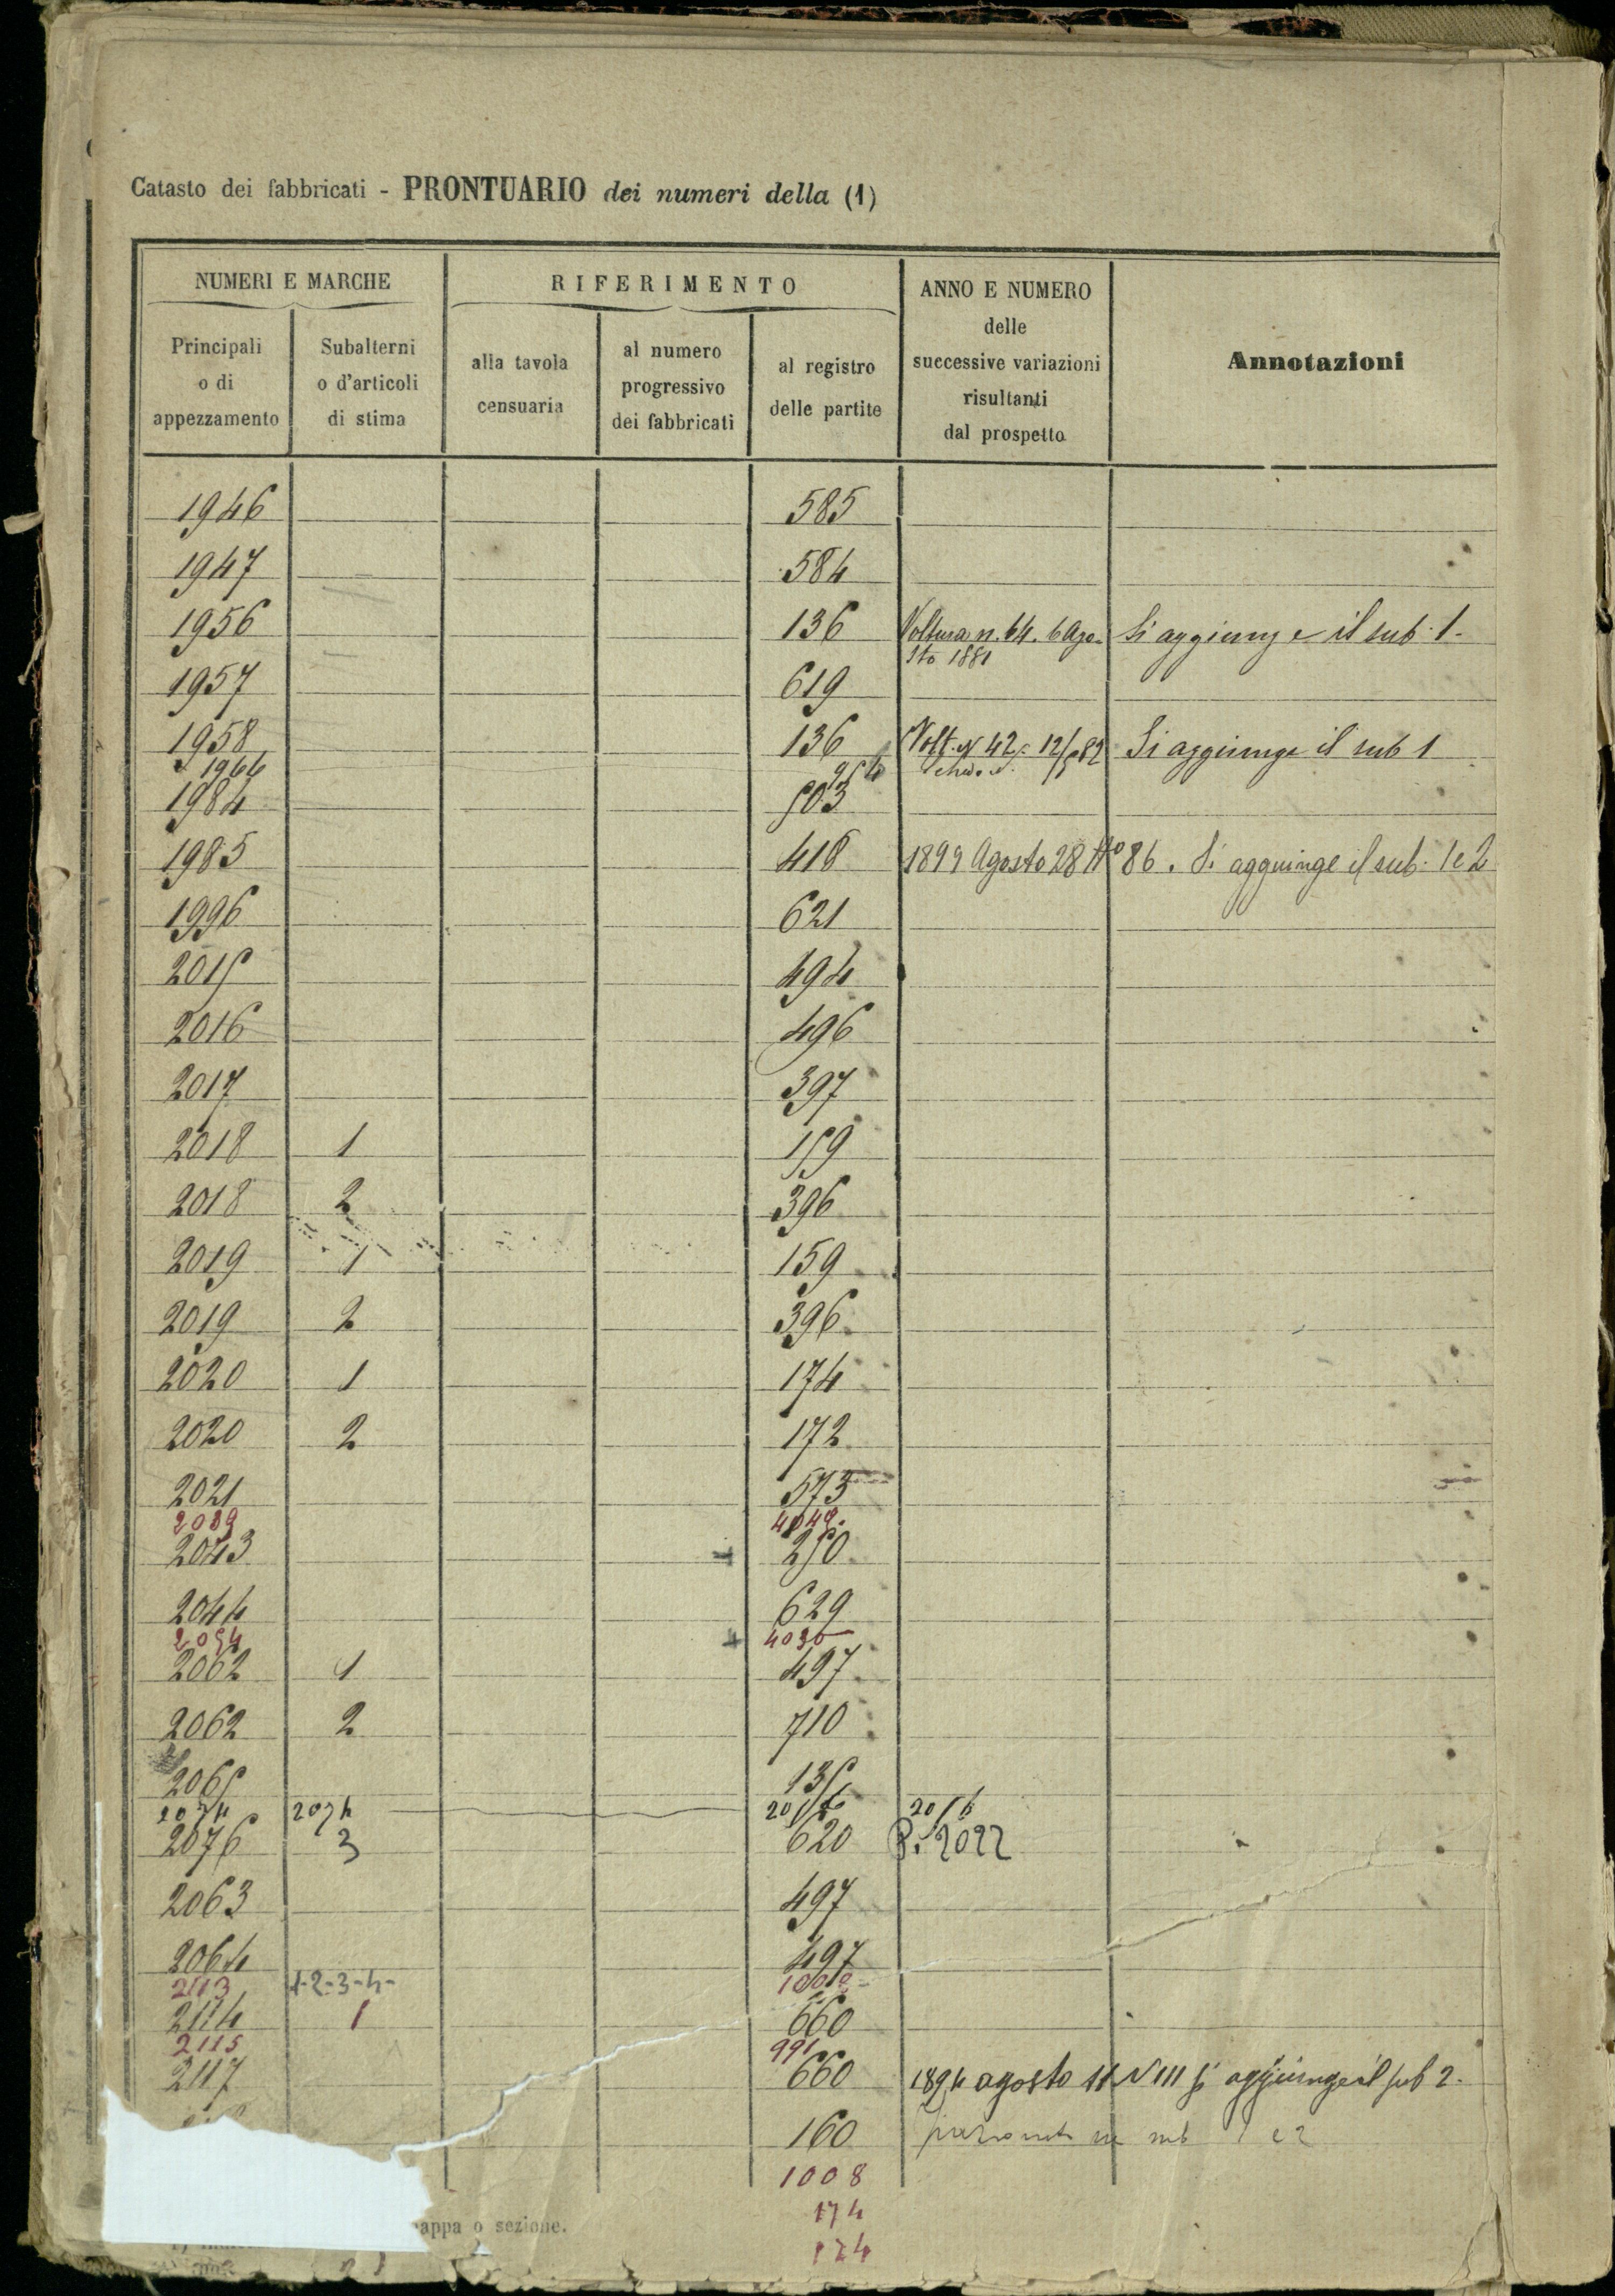 Catasto dei fabbricati - PRONTUARIO dei numeri della (1)
NUMERI E MARCHE
RIFERIMENTO
ANNO E NUMERO
delle
successive variazioni
risultanti
dal prospetto
Annotazioni
Principali
o di
appezzamento
Subalterni
o d'articoli
di stima
alla tavola
censuaria
al numero
progressivo
dei fabbricati
al registro
delle partite
1946 585
1947 584
1956 136 Voltura n. 64. 6 Ago- Si aggiunge il sub. 1.
sto 1881
1957 619
1958 136 Volt. N 42 = 12/ 82 Si aggiunge il sub 1
1964 954
1984 503
1985 418 1899 Agosto 28 No 86. Si aggiunge il sub. 1e2
1996 621
2015 494
2016 496
2017 397
2018 1 159
2018 2 396
2019 1 159
2019 2 396
2020 1 174
2020 2 172
2021 573
2089 4042.
2043 250
2044 629
2054 4030
2062 1 497
2062 2 710
2065 135
2074 2074 2056 2056
2076 3 620 P. 2022
2063 497
2064 497
2113 1-2-3-4- 1002
2114 1 660
2115 991
2117 660 1894 agosto 11 N 111 si aggiunge il sub 2.
160 sub 1 e 2
1008
174
174
appa o sezione.